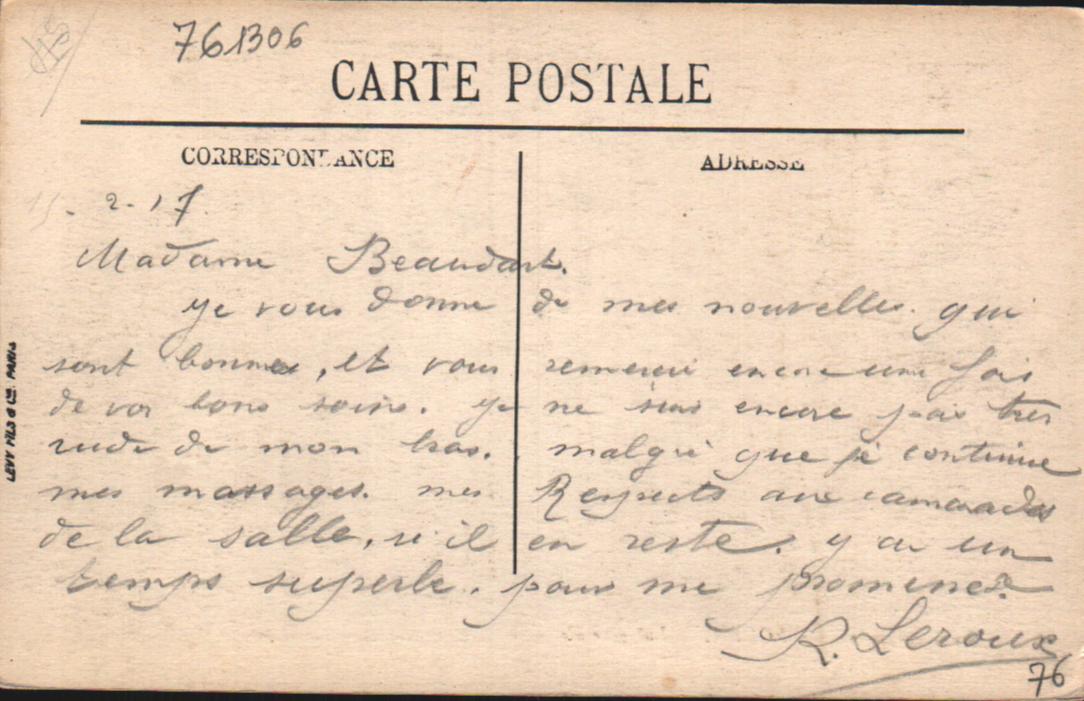 761306
CARTE POSTALE
CORRESPONDANCE
ADRESSE
15. 2. 17
Madame Beaudart.
je vous donne de mes nouvelles. qui
sont bonnes, et vous remercie encore une fois
de vos bons soins. je ne suis encore pas tres
rude de mon bras. malgré que je continue
mes massages. mes Respects aux camarades
de la salle, si il en reste. y a un
temps superbe. pour me promener.
R. Leroux
76
LEVY FILS & Cie. PARIS